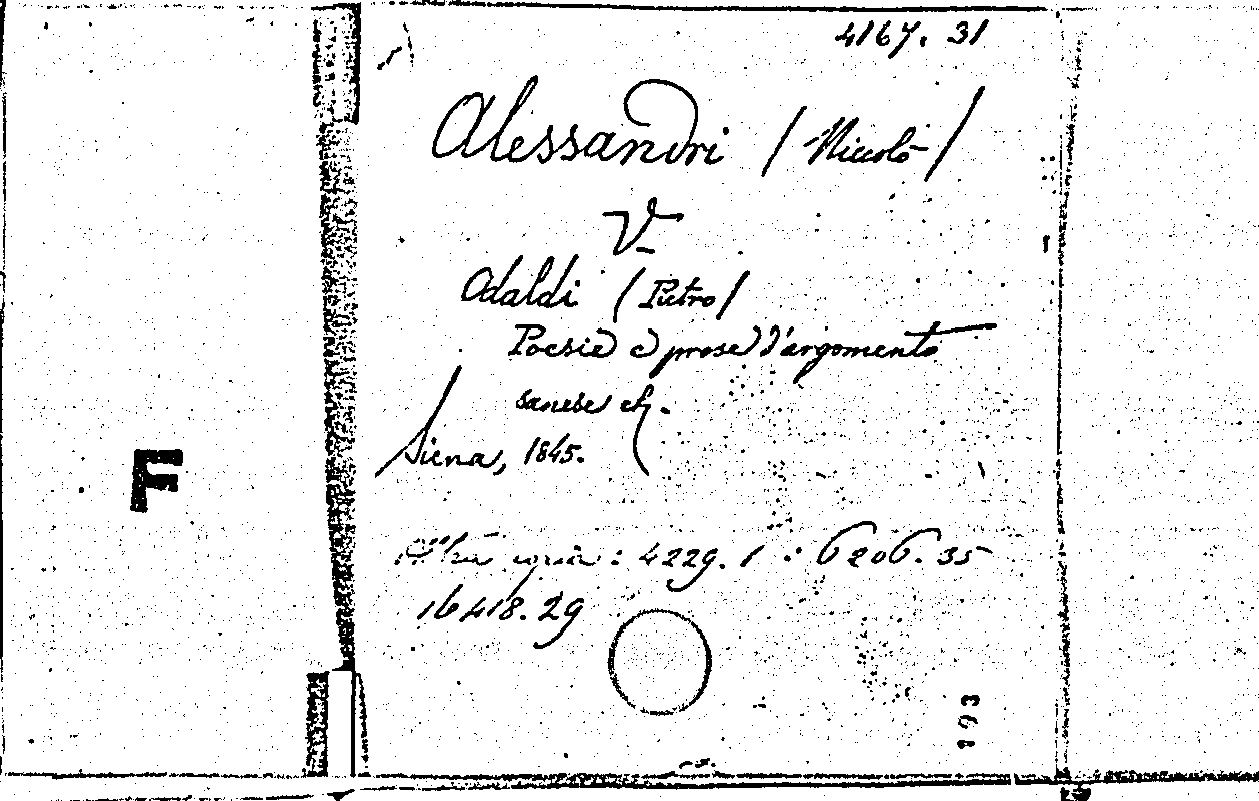 4167. 31
Alessandri (Niccolò)
V.
Adaldi (Pietro)
Poesie e prose d'argomento
sanese etc.
Siena, 1845.
Altra copia: 4229. 1 : 6206. 35
16418. 29
193
F